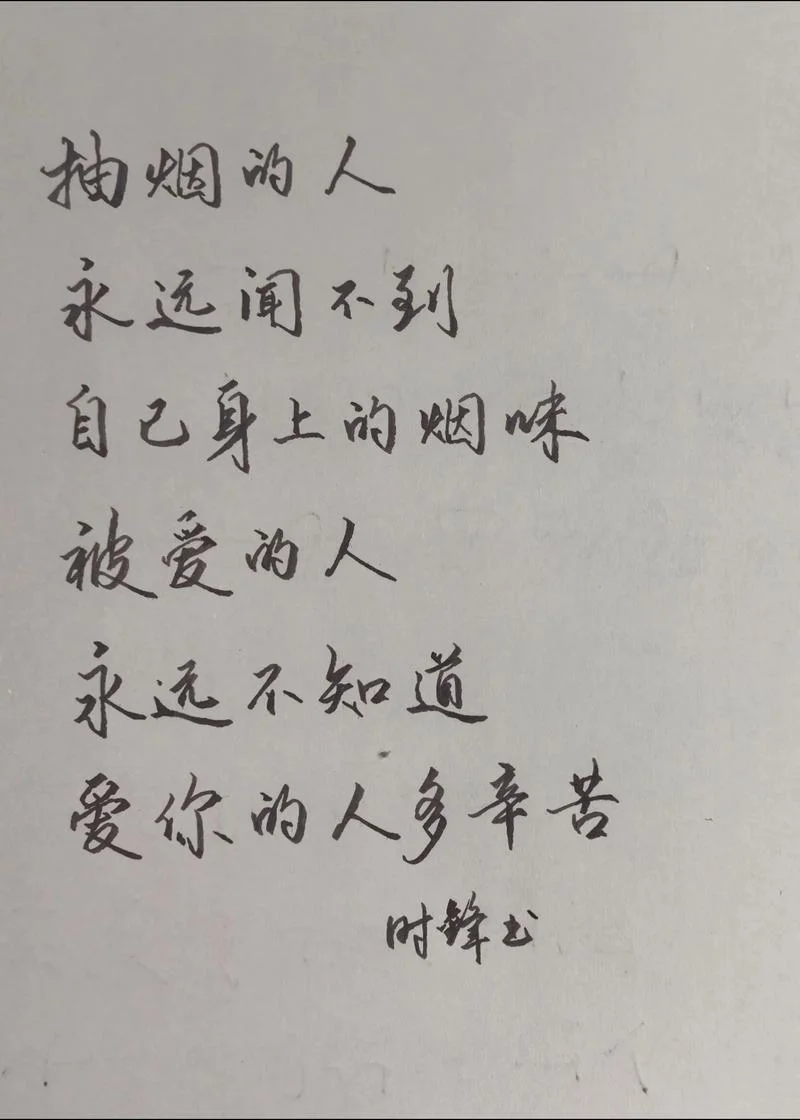 抽烟的人
永远闻不到
自己身上的烟味
被爱的人
永远不知道
爱你的人多辛苦
时锋书